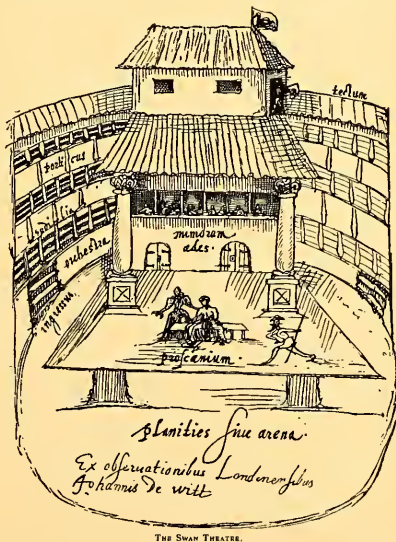 tectum
porticus
sedilia
orchestra
ingressus
mimorum
ædes.
proscænium.
planities siue arena.
Ex observationibus Londinensibus
Johannis De witt
THE SWAN THEATRE.